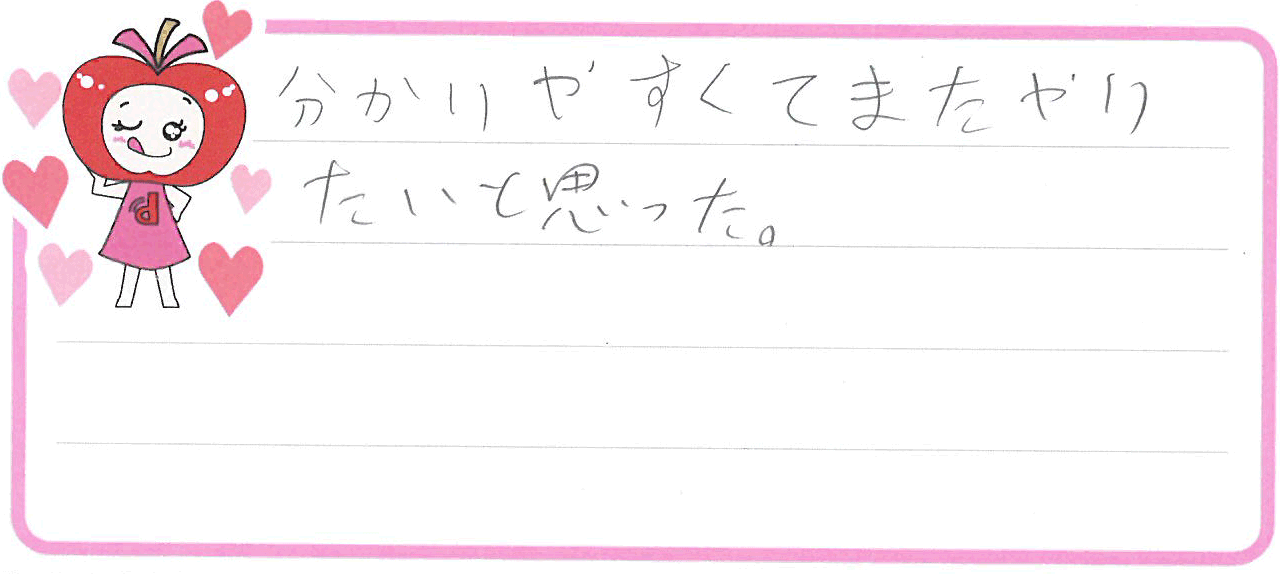 分かりやすくてまたやり
たいと思った。